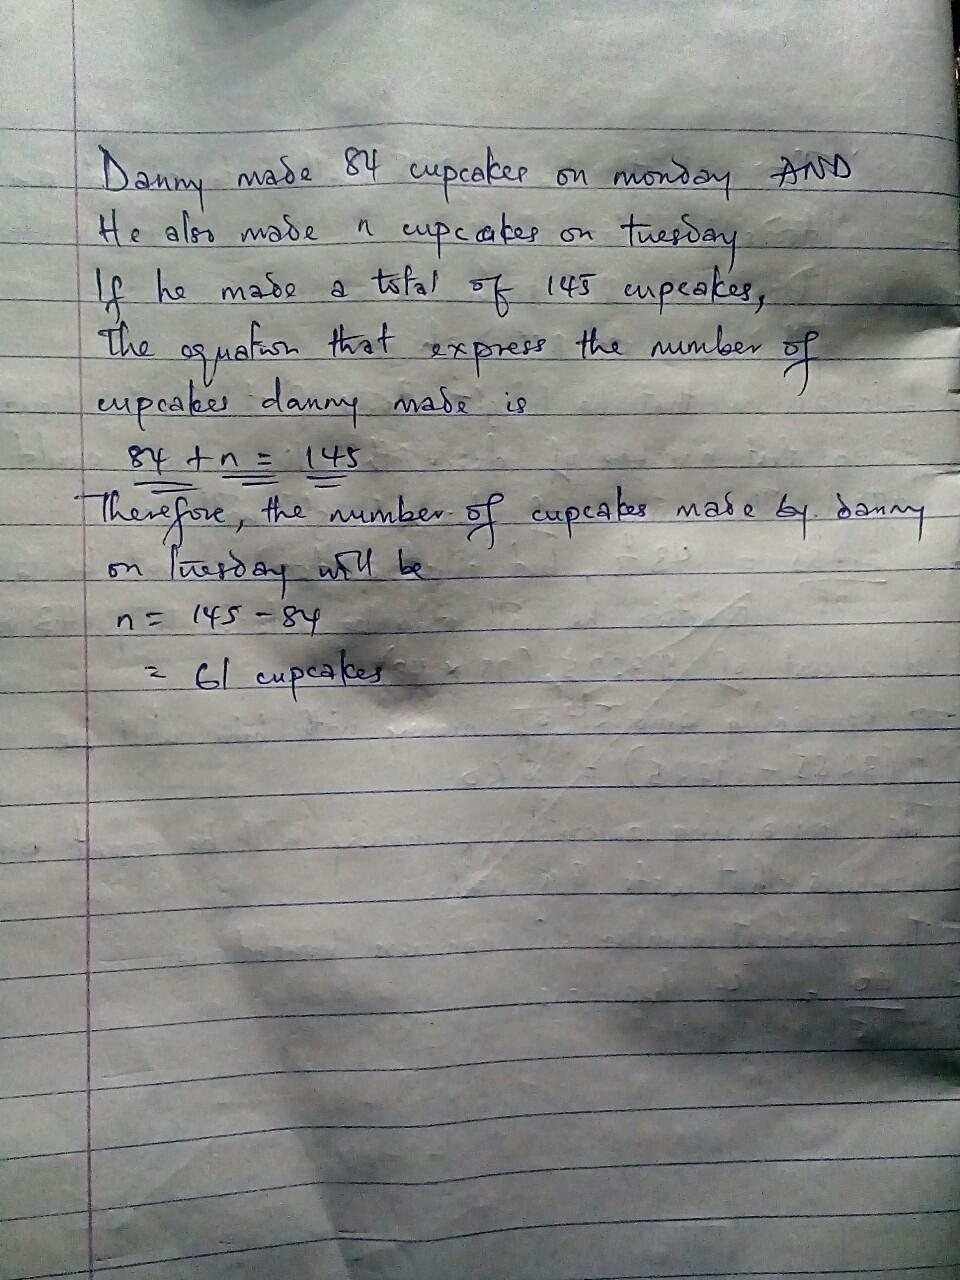 Danny made 84 cupcakes on monday AND
He also made n cupcakes on tuesday
If he made a total of 145 cupcakes,
The equation that express the number of
cupcakes danny made is
84 + n = 145
Therefore, the number of cupcakes made by danny
on Tuesday will be
n = 145 - 84
= 61 cupcakes